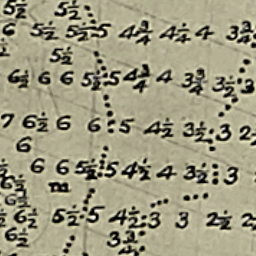 5½ 5½
6 5½ 5½ 5 4¾ 4½ 4 3¾
5½
6½ 6 6 5½ 5 4¾ 4 3¾ 3½ 3
7 6½ 6 6 5 4½ 3½ 3 2
6
6 6 5½ 5 4½ 4 3½ 3
6½
m
6½ 5½ 5 4½ 3 3 2½ 2
6½
3¾